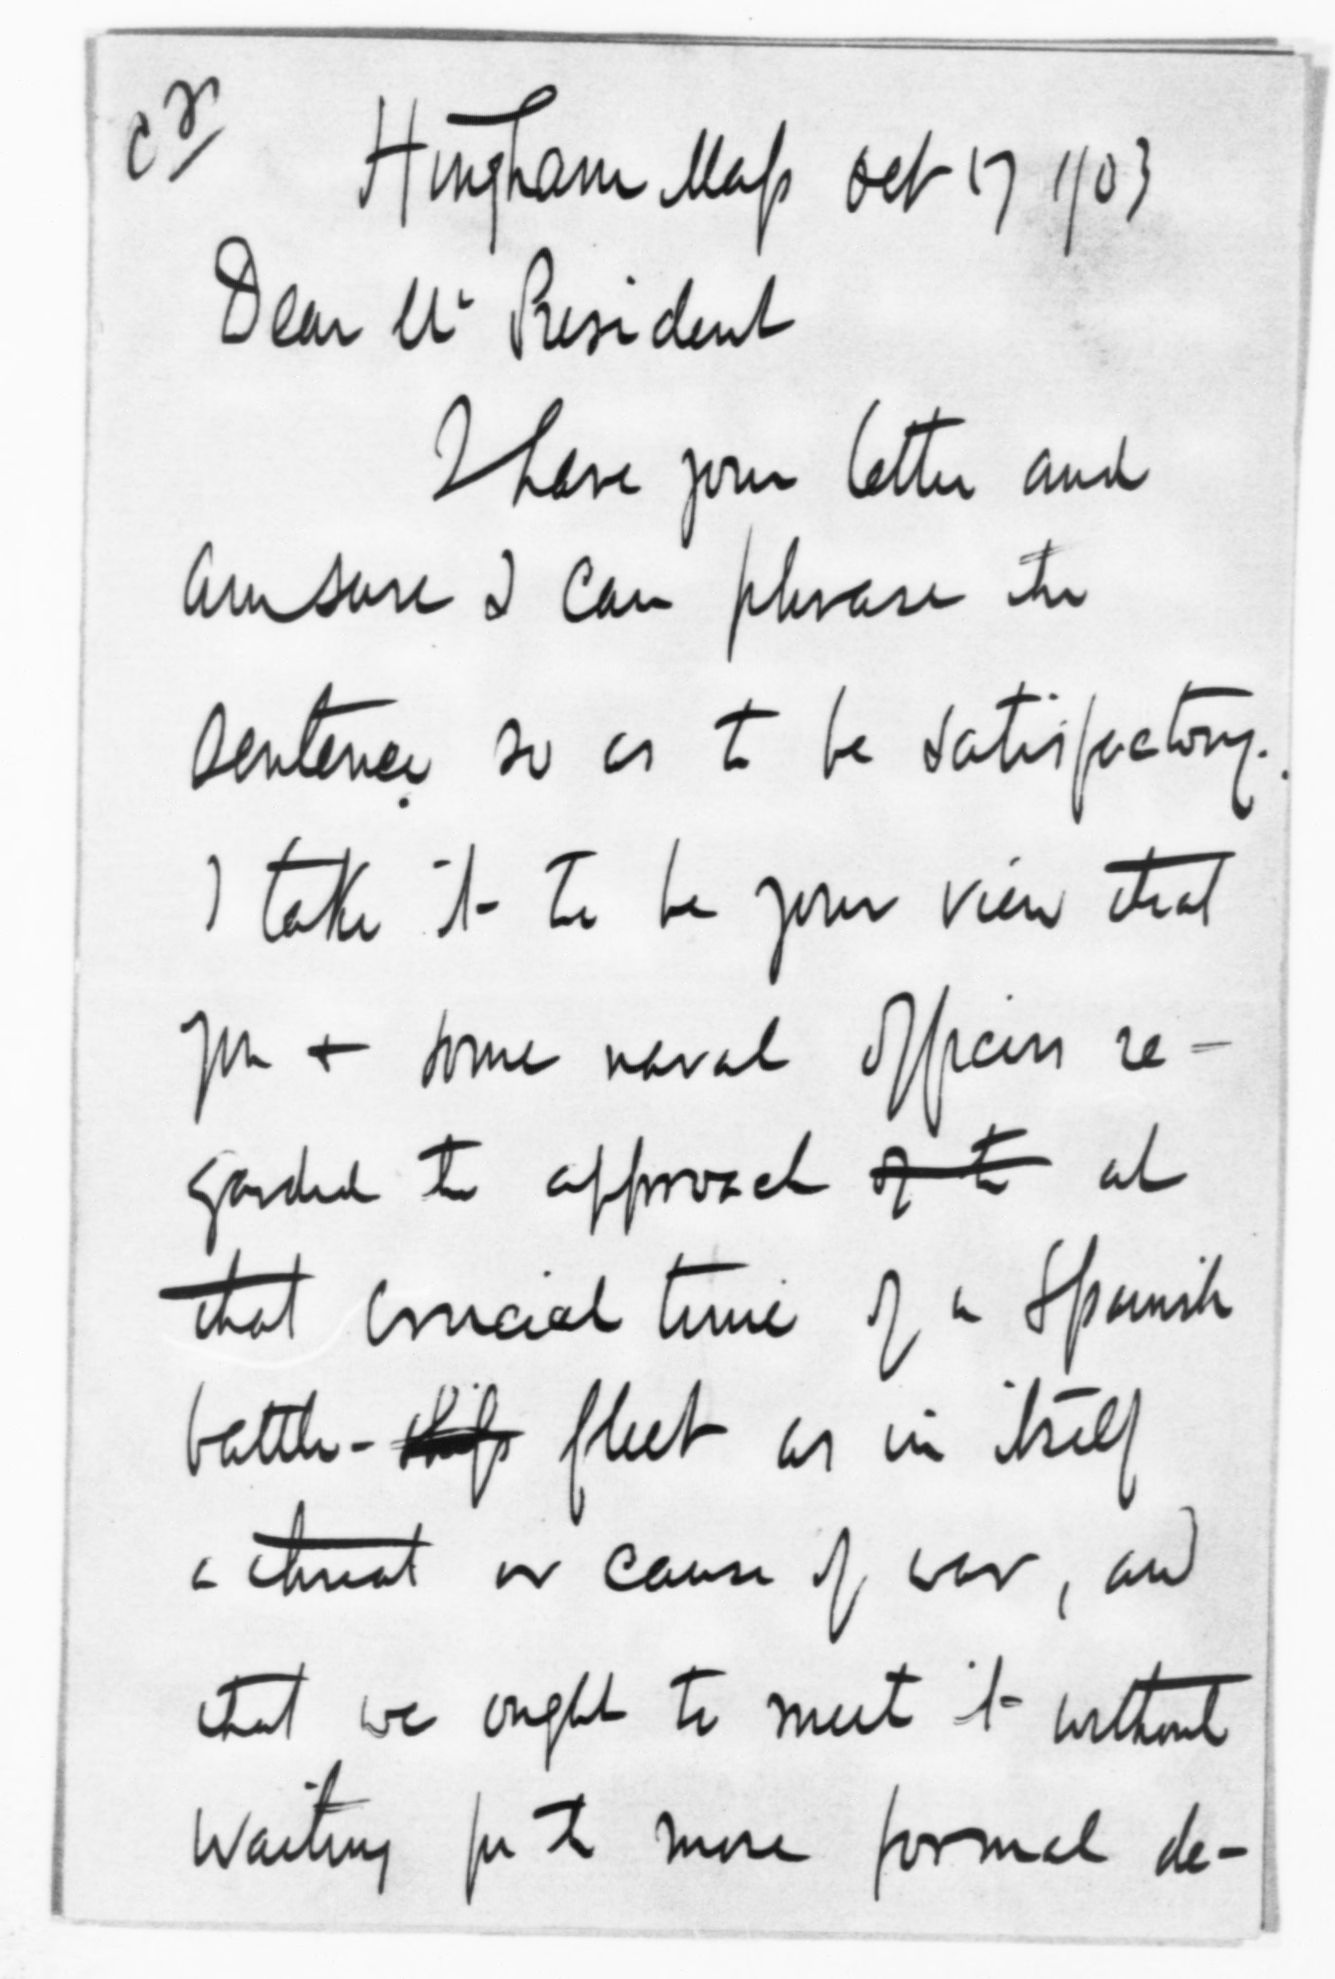 Hingham Mass Oct 17 1903
Dear Mr President
I have your letter and
am sure I can phrase the
sentence so as to be satisfactory.
I take it to be your view that
you + some naval officers re-
garded the approach of the at
that crucial time of a Spanish
battle-ships fleet as in itself
a threat or cause of war, and
that we ought to meet it without
waiting for the more formal de-